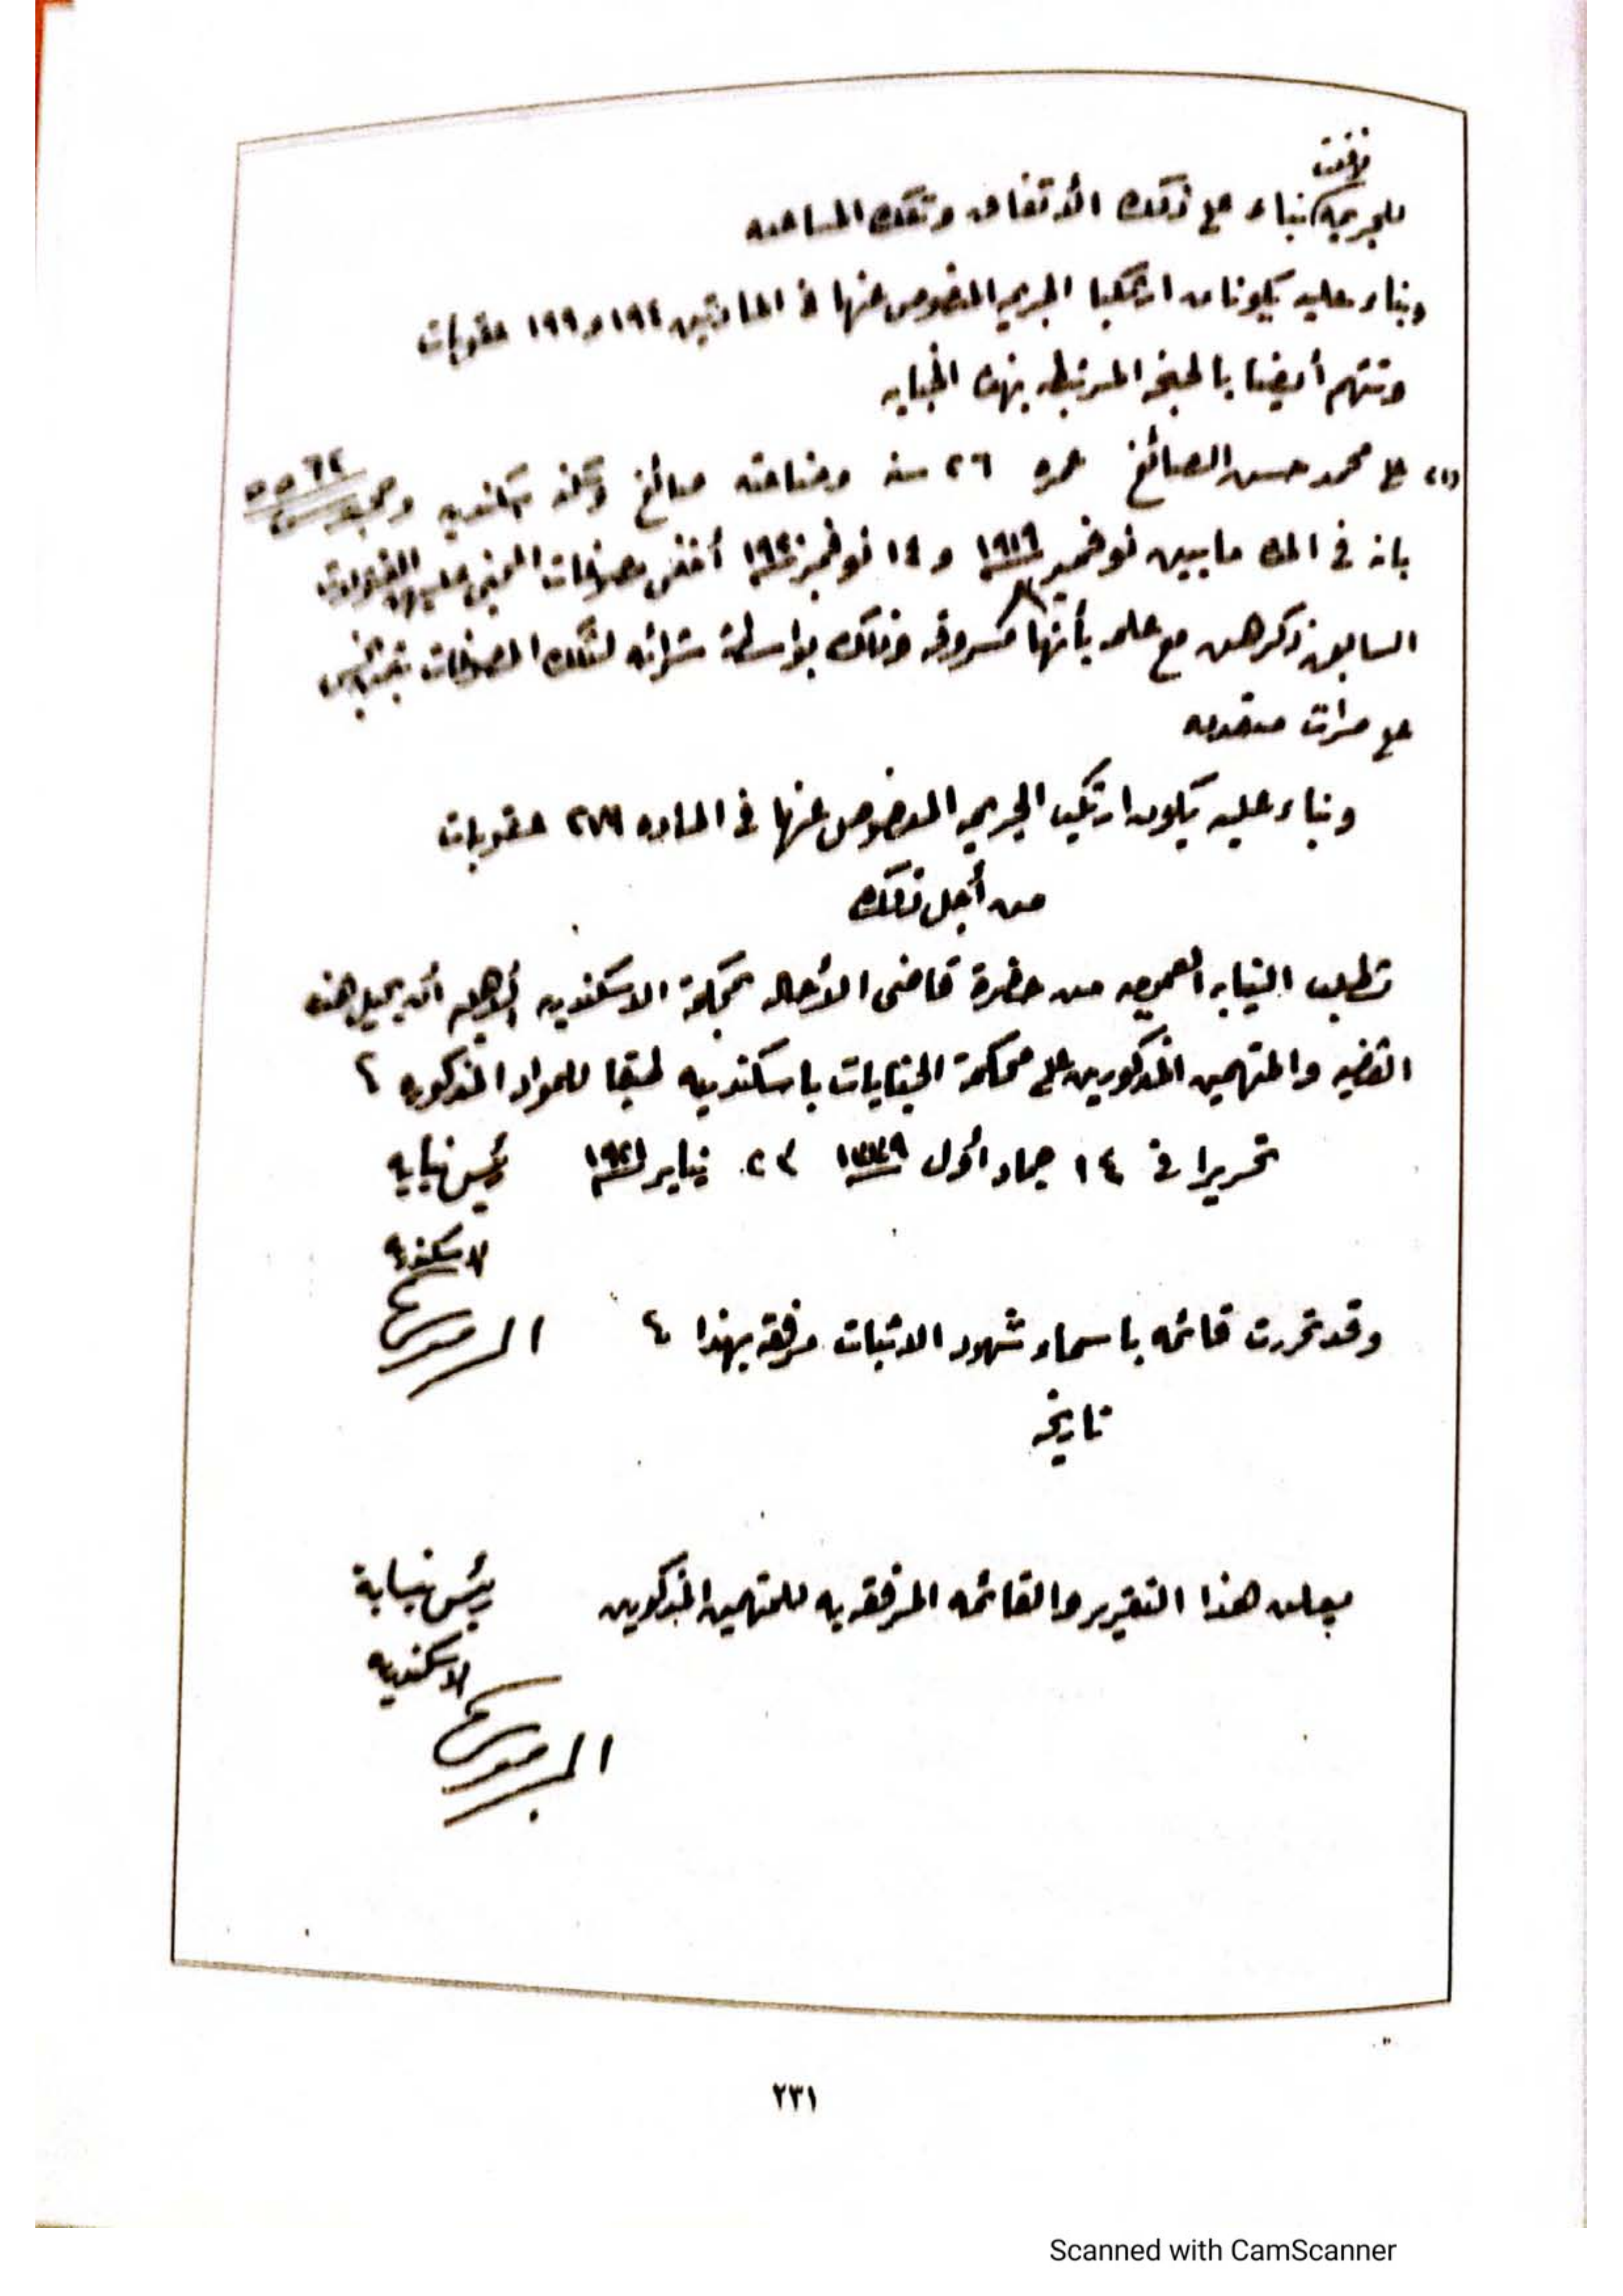 وقعت
للجريمة بناء على ذلك الأتفاق وتلك المساعده
وبناء عليه يكونان ارتكبا الجريمه المنصوص عنها في المادتين ١٩٤ و ١٩٩ عقوبات
وتتهم أيضا بالجنحه المرتبطه بهذه الجنايه
على محمد حسن الصائغ عمره ٢٦ سنه وصناعته صائغ وسكنه سكندريه ومحبوس
بانه في المده ما بين نوفمبر ١٩١٩ و ١٤ نوفمبر ١٩٢٠ أخفى مصوغات المجنى عليهن
السابق ذكرهن مع علمه بأنها مسروقه وذلك بواسطة شرائه لتلك المصوغات بثمن بخس
على مرات متعدده
وبناء عليه يكون ارتكب الجريمه المنصوص عنها في الماده ٢٧٩ عقوبات
من أجل ذلك
تطلب النيابه العموميه من حضرة قاضى الأحاله بمحكمة الاسكندريه الأهليه أن يحيل هذه
القضيه والمتهمين المذكورين على محكمة الجنايات باسكندريه طبقا للمواد المذكوره
تحريرا في ١٤ جماد أول ١٣٣٩ ٢٣ يناير ١٩٢١ رئيس نيابه
الاسكندريه
وقد تحررت قائمه باسماء شهود الاثبات مرفقه بهذا
تاريخه
يعلن هذا التقرير والقائمه المرفقه به للمتهمين المذكورين رئيس نيابة
الاسكندريه
٢٣١
Scanned with CamScanner